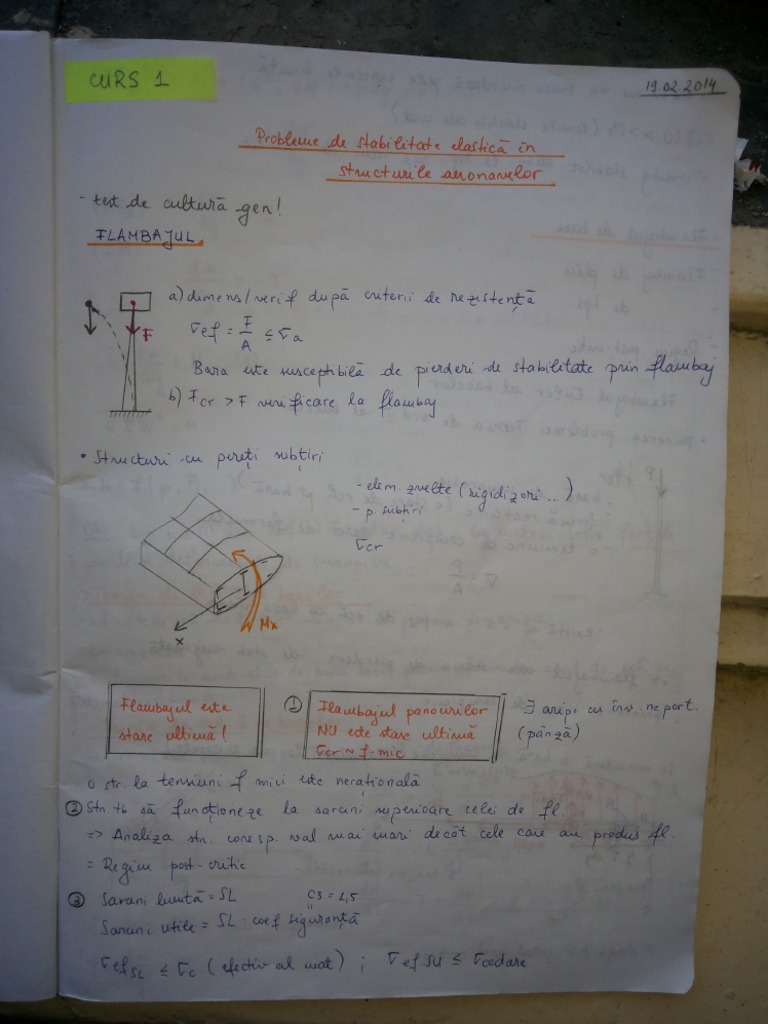 CURS 1
19.02.2014
Probleme de stabilitate elastică în
structurile aeronavelor
- test de cultură gen!
FLAMBAJUL
a) dimens/verif după criterii de rezistență
σef = F/A ≤ σa
F
Bara este susceptibilă de pierderi de stabilitate prin flambaj
b) Fcr > F verificare la flambaj
• Structuri cu pereți subțiri
- elem. zvelte (rigidizori ...)
- p. subțiri
σcr
Mx
x
Flambajul este
stare ultimă!
① Flambajul panourilor
NU este stare ultimă
σcr ~ f. mic
∃ aripi cu înv. neport.
(pânză)
o str. la tensiuni f mici este nerațională
② Str. tb să funcționeze la sarcini superioare celei de fl.
=> Analiza str. coresp. val mai mari decât cele care au produs fl.
= Regim post-critic
③ Sarcini limită = SL
CS = 1,5
Sarcini utile = SL · coef siguranță
σef SL ≤ σc (efectiv al mat) ; σef SU ≤ σcedare